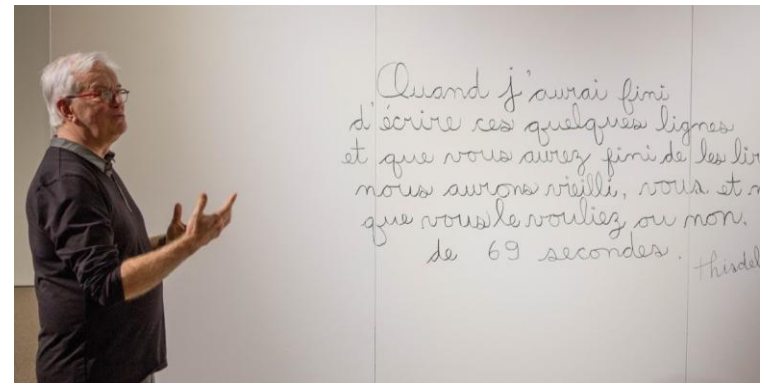 Quand j'aurai fini
d'écrire ces quelques lignes
et que vous aurez fini de les lir
nous aurons vieilli, vous et
que vous le vouliez ou non.
de 69 secondes.